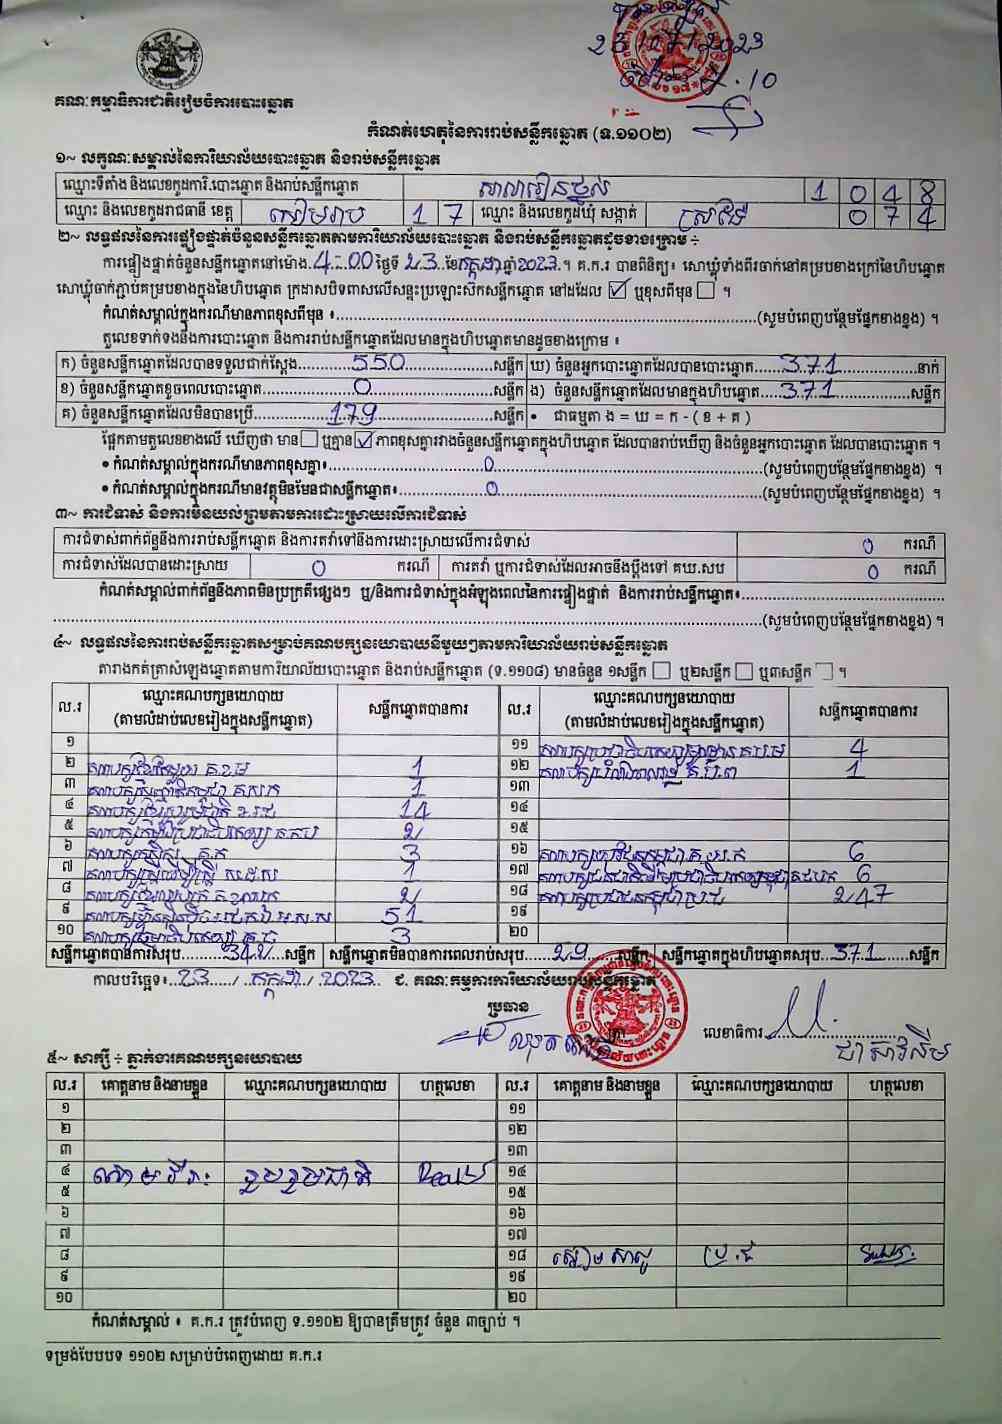 23 07 2023
គណៈកម្មាធិការជាតិរៀបចំការបោះឆ្នោត
កំណត់ហេតុនៃការរាប់សន្លឹកឆ្នោត (ទ.១១០២)
១~ លក្ខណៈសម្គាល់នៃការិយាល័យបោះឆ្នោត និងរាប់សន្លឹកឆ្នោត
ឈ្មោះទីតាំង និងលេខកូដការិ.បោះឆ្នោត និងរាប់សន្លឹកឆ្នោត សាលារៀនថ្នល់ 1 0 4 8
ឈ្មោះ និងលេខកូដរាជធានី ខេត្ត សៀមរាប 1 7 ឈ្មោះ និងលេខកូដឃុំ សង្កាត់ 0 7 4
២~ លទ្ធផលនៃការផ្ទៀងផ្ទាត់ចំនួនសន្លឹកឆ្នោតតាមការិយាល័យបោះឆ្នោត និងរាប់សន្លឹកឆ្នោតដូចខាងក្រោម ÷
ការផ្ទៀងផ្ទាត់ចំនួនសន្លឹកឆ្នោតនៅម៉ោង 4:00 ថ្ងៃទី 23 ខែកក្កដា ឆ្នាំ2023 ។ គ.ក.រ បានពិនិត្យ៖ សោឃ្លុំទាំងពីរចាក់នៅគម្របខាងក្រៅនៃហិបឆ្នោត
សោឃ្លុំចាក់ភ្ជាប់គម្របខាងក្នុងនៃហិបឆ្នោត ក្រដាសបិទពាសលើសន្ទះប្រឡោះសឹកសន្លឹកឆ្នោត នៅដដែល ☑ ឬខុសពីមុន ☐ ។
កំណត់សម្គាល់ក្នុងករណីមានភាពខុសពីមុន ៖ (សូមបំពេញបន្ថែមផ្នែកខាងខ្នង) ។
តួលេខទាក់ទងនឹងការបោះឆ្នោត និងការរាប់សន្លឹកឆ្នោតដែលមានក្នុងហិបឆ្នោតមានដូចខាងក្រោម ៖
ក) ចំនួនសន្លឹកឆ្នោតដែលបានទទួលជាក់ស្តែង 550 សន្លឹក ឃ) ចំនួនអ្នកបោះឆ្នោតដែលបានបោះឆ្នោត 371 នាក់
ខ) ចំនួនសន្លឹកឆ្នោតខូចពេលបោះឆ្នោត 0 សន្លឹក ង) ចំនួនសន្លឹកឆ្នោតដែលមានក្នុងហិបឆ្នោត 371 សន្លឹក
គ) ចំនួនសន្លឹកឆ្នោតដែលមិនបានប្រើ 179 សន្លឹក • ជាធម្មតា ង = ឃ = ក - ( ខ + គ )
ផ្អែកតាមតួលេខខាងលើ ឃើញថា មាន ☐ ឬគ្មាន ☑ ភាពខុសគ្នារវាងចំនួនសន្លឹកឆ្នោតក្នុងហិបឆ្នោត ដែលបានរាប់ឃើញ និងចំនួនអ្នកបោះឆ្នោត ដែលបានបោះឆ្នោត ។
• កំណត់សម្គាល់ក្នុងករណីមានភាពខុសគ្នា៖ 0 (សូមបំពេញបន្ថែមផ្នែកខាងខ្នង) ។
• កំណត់សម្គាល់ក្នុងករណីមានវត្ថុមិនមែនជាសន្លឹកឆ្នោត៖ 0 (សូមបំពេញបន្ថែមផ្នែកខាងខ្នង) ។
៣~ ការជំទាស់ និងការមិនយល់ព្រមតាមការដោះស្រាយលើការជំទាស់
ការជំទាស់ពាក់ព័ន្ធនឹងការរាប់សន្លឹកឆ្នោត និងការតវ៉ាទៅនឹងការដោះស្រាយលើការជំទាស់ 0 ករណី
ការជំទាស់ដែលបានដោះស្រាយ 0 ករណី ការតវ៉ា ឬការជំទាស់ដែលអាចនឹងប្តឹងទៅ គឃ.សប 0 ករណី
កំណត់សម្គាល់ពាក់ព័ន្ធនឹងភាពមិនប្រក្រតីផ្សេងៗ ឬ/និងការជំទាស់ក្នុងអំឡុងពេលនៃការផ្ទៀងផ្ទាត់ និងការរាប់សន្លឹកឆ្នោត៖
(សូមបំពេញបន្ថែមផ្នែកខាងខ្នង) ។
៤~ លទ្ធផលនៃការរាប់សន្លឹកឆ្នោតសម្រាប់គណបក្សនយោបាយនីមួយៗតាមការិយាល័យរាប់សន្លឹកឆ្នោត
តារាងកត់ត្រាសំឡេងឆ្នោតតាមការិយាល័យបោះឆ្នោត និងរាប់សន្លឹកឆ្នោត (ទ.១១០៨) មានចំនួន ១សន្លឹក ☐ ឬ២សន្លឹក ☐ ឬ៣សន្លឹក ☐ ។
ល.រ ឈ្មោះគណបក្សនយោបាយ (តាមលំដាប់លេខរៀងក្នុងសន្លឹកឆ្នោត) សន្លឹកឆ្នោតបានការ ល.រ ឈ្មោះគណបក្សនយោបាយ (តាមលំដាប់លេខរៀងក្នុងសន្លឹកឆ្នោត) សន្លឹកឆ្នោតបានការ
១ ១១ 4
២ គណបក្សខ្មែរតែមួយ គ.ខ.ម 1 ១២ 1
៣ 1 ១៣
៤ 14 ១៤
៥ 2 ១៥
៦ 3 ១៦ 6
៧ 1 ១៧ 6
៨ 2 ១៨ គណបក្សប្រជាជនកម្ពុជា ប្រ.ជ 247
៩ 51 ១៩
១០ 3 ២០
សន្លឹកឆ្នោតបានការសរុប 342 សន្លឹក សន្លឹកឆ្នោតមិនបានការពេលរាប់សរុប 29 សន្លឹក សន្លឹកឆ្នោតក្នុងហិបឆ្នោតសរុប 371 សន្លឹក
កាលបរិច្ឆេទ៖ 23 / កក្កដា / 2023 ជ. គណៈកម្មការការិយាល័យរាប់សន្លឹកឆ្នោត
ប្រធាន
លេខាធិការ
៥~ សាក្សី ÷ ភ្នាក់ងារគណបក្សនយោបាយ
ល.រ គោត្តនាម និងនាមខ្លួន ឈ្មោះគណបក្សនយោបាយ ហត្ថលេខា ល.រ គោត្តនាម និងនាមខ្លួន ឈ្មោះគណបក្សនយោបាយ ហត្ថលេខា
១ ១១
២ ១២
៣ ១៣
៤ ខ្មែររួមជាតិ ១៤
៥ ១៥
៦ ១៦
៧ ១៧
៨ ១៨ ប្រ.ជ
៩ ១៩
១០ ២០
កំណត់សម្គាល់ ៖ គ.ក.រ ត្រូវបំពេញ ទ.១១០២ ឱ្យបានត្រឹមត្រូវ ចំនួន ៣ច្បាប់ ។
ទម្រង់បែបបទ ១១០២ សម្រាប់បំពេញដោយ គ.ក.រ